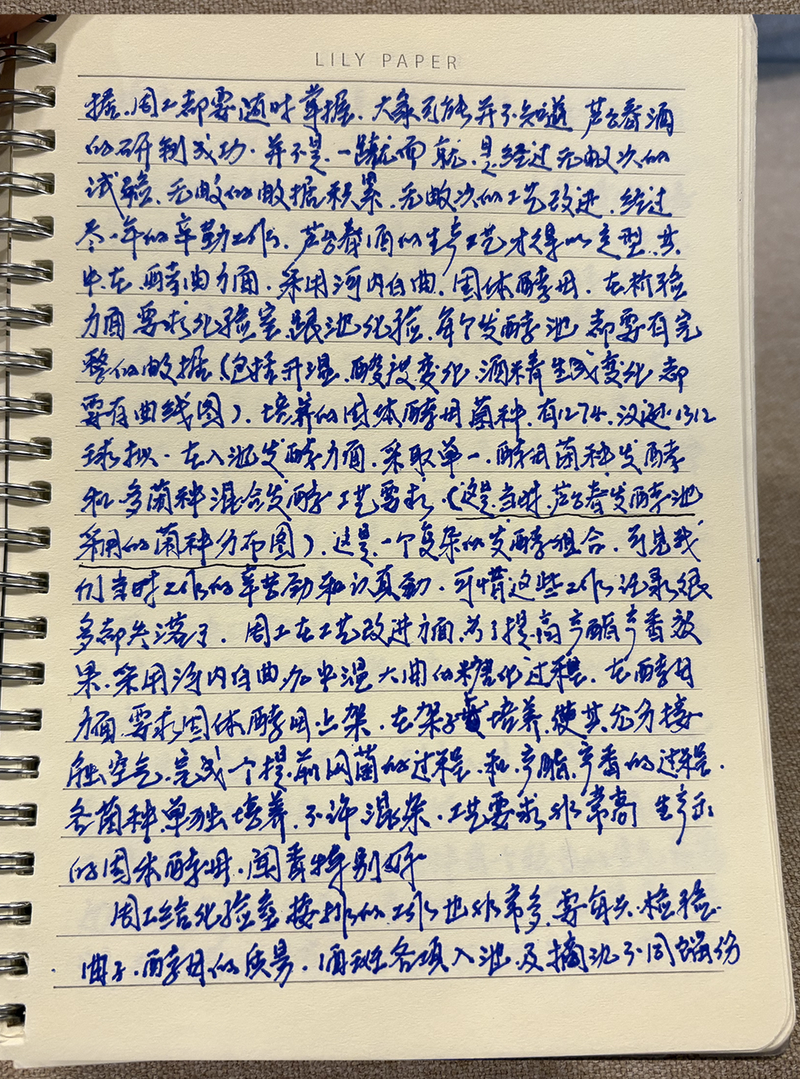 LILY PAPER
据,周工都要随时掌握,大家可能并不知道芦台春酒
的研制成功,并不是一蹴而就,是经过无数次的
试验,无数的数据积累,无数次的工艺改进,经过
尽一年的辛勤工作,芦台春酒的生产工艺才得以定型,其
中在酵曲方面,采用河内白曲,固体酵母,在检验
方面要求化验室跟池化验,每个发酵池都要有完
整的数据(包括升温,酸度变化,酒精生成变化都
要有曲线图),培养的固体酵母菌种,有1274,汉逊,1312
球拟,在入池发酵方面,采取单一酵母菌种发酵
和多菌种混合发酵工艺要求,(这是当时芦台春发酵池
采用的菌种分布图),这是一个复杂的发酵组合,可见我
们当时工作的辛苦劲和认真劲,可惜这些工作记录很
多都失落了,周工在工艺改进方面,为了提高产酯产香效
果,采用河内白曲加中温大曲的糖化过程,在酵母
方面要求固体酵母上架,在架子培养,使其充分接
触空气,完成一个提前闷菌的过程,和产酯,产香的过程,
各菌种单独培养,不许混杂,工艺要求非常高,生产示
的固体酵母,闻香特别好
周工给化验室安排的工作也非常多,要每天检验
曲子,酵母的质量,酒班各项入池,及摘汽不同馏份